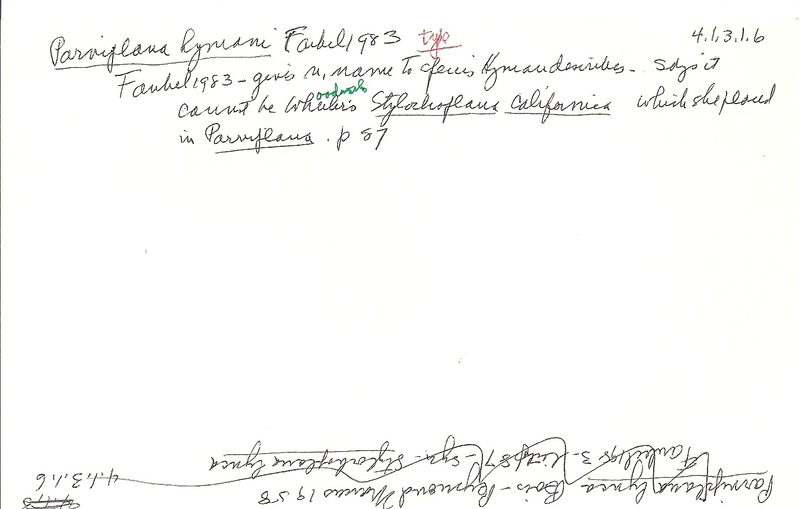 Parviplana hymani Faubel 1983 type 4.1.3.1.6
Faubel 1983 - gives n. name to species Hyman describes - says it
cannot be Wheeler's Stylochoplana californica which she placed
in Parviplana. p 87
Parviplana lynca Bois-Reymond Marcus 1958
Faubel 1983 - list p 87 - syn. Stylochoplana lynca 4.1.3.1.6